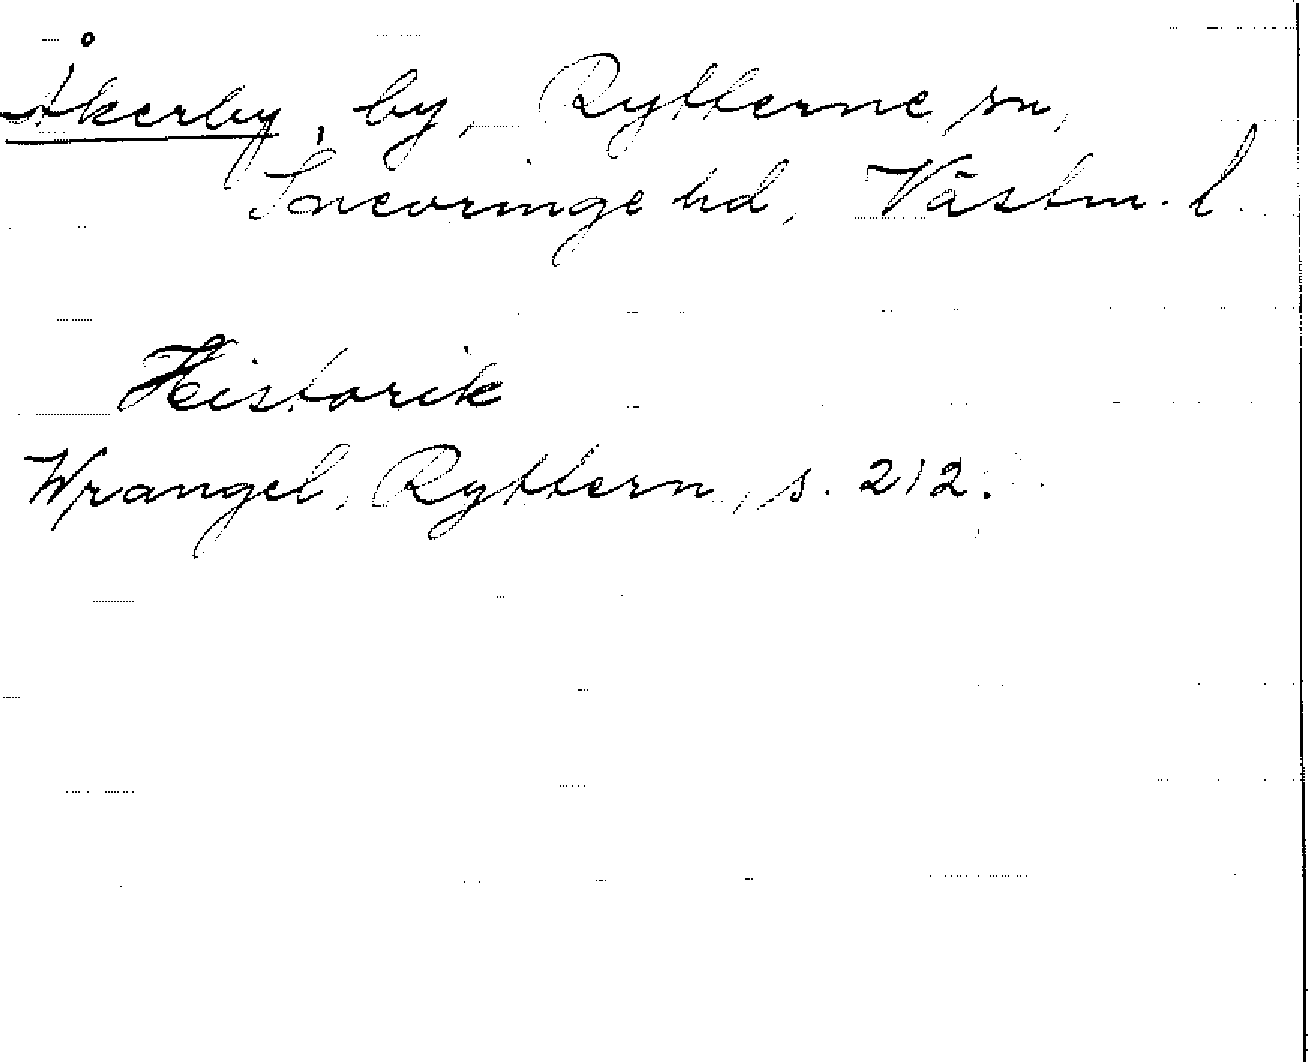 Åkerby, by, Rytterne sn,
Snevringe hd, Västm. l.
Historik
Wrangel, Ryttern, s. 212.